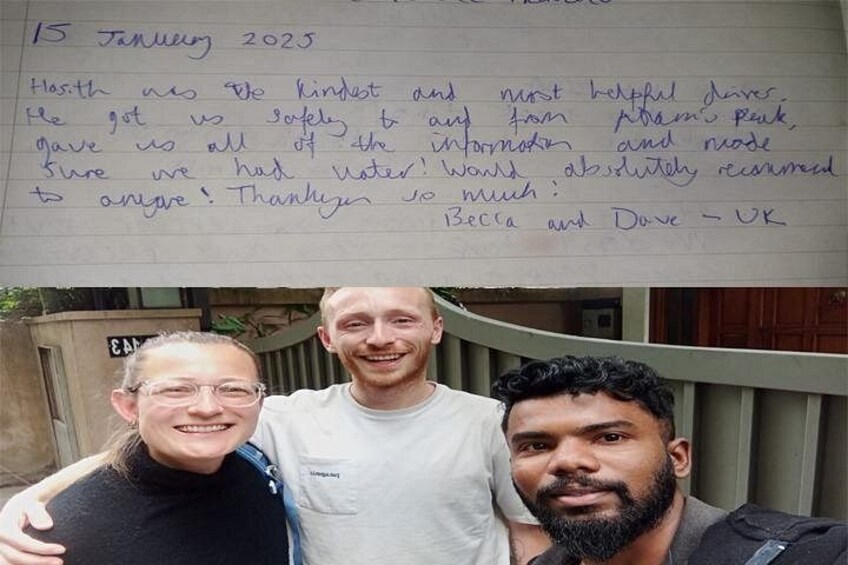 15 January 2025
Hasith was the kindest and most helpful driver.
He got us safely to and from Adam's Peak,
gave us all of the information and made
sure we had water! Would absolutely recommend
to anyone! Thankyou so much!
Becca and Dave - UK
143